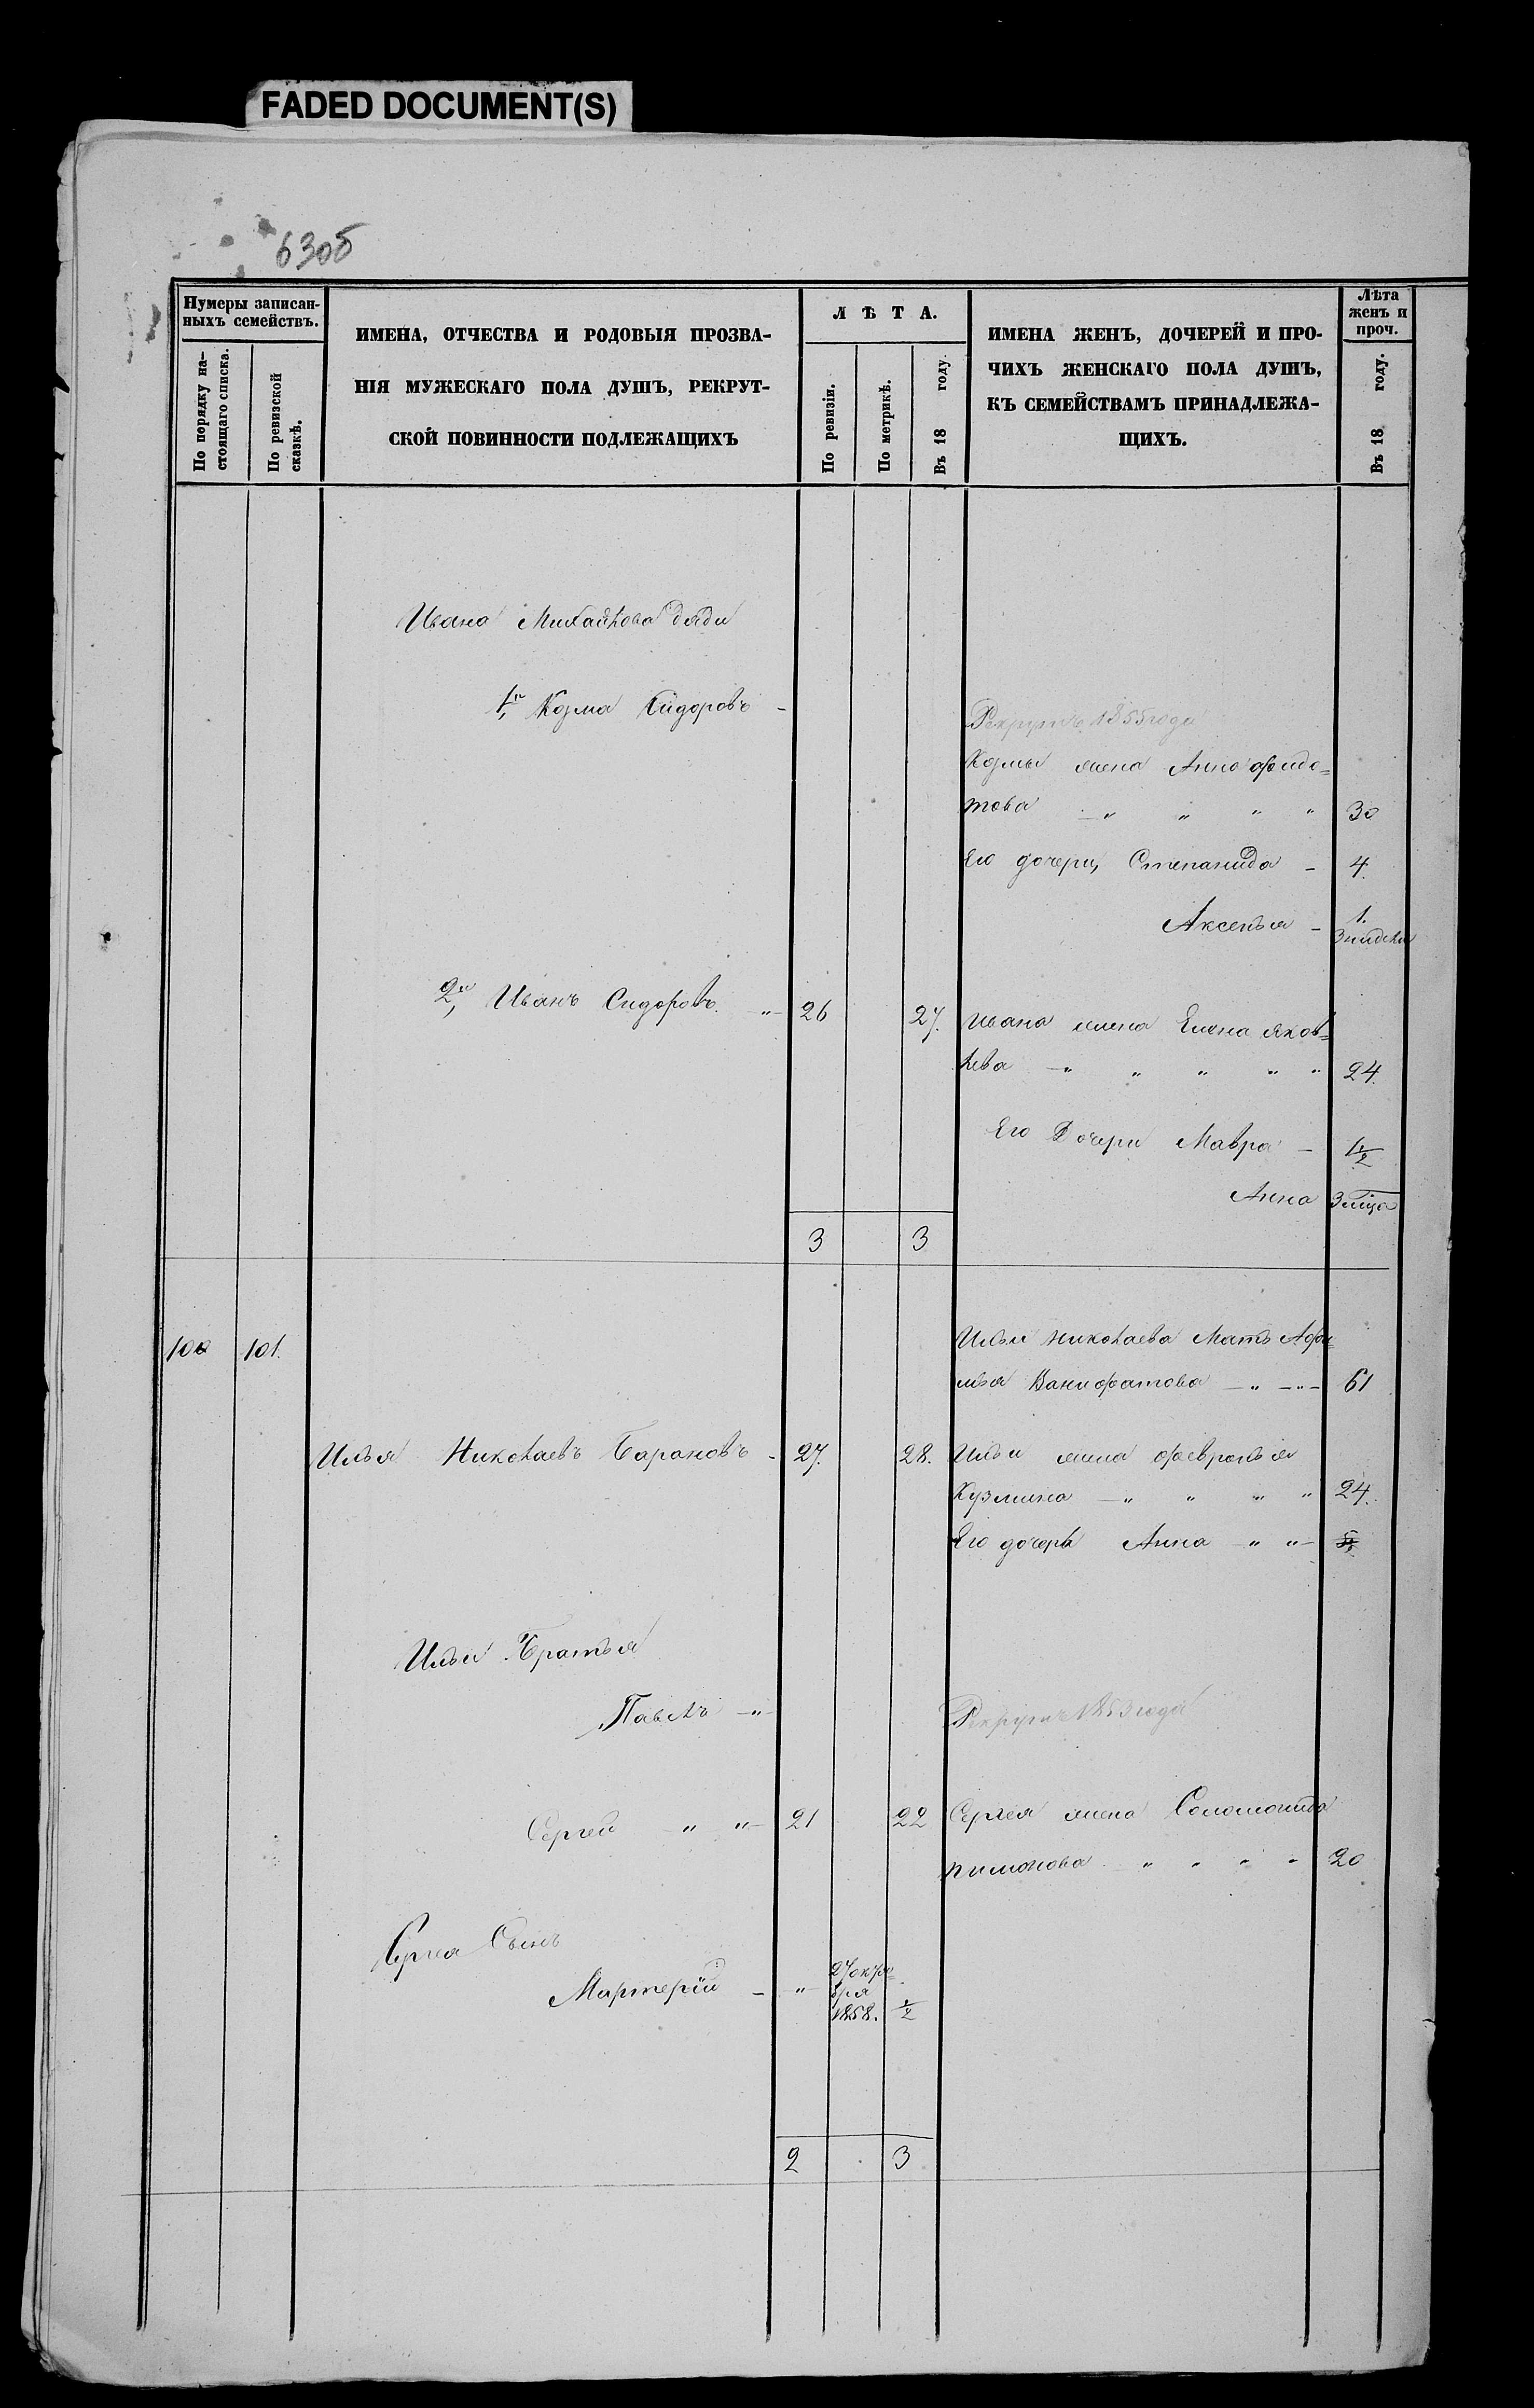 FADED DOCUMENT(S)
630б
Нумеры записан-
ныхъ семействъ.
По порядку на-
стоящаго списка.
По ревизской
сказкѣ.
ИМЕНА, ОТЧЕСТВА И РОДОВЫЯ ПРОЗВА-
НІЯ МУЖЕСКАГО ПОЛА ДУШЪ, РЕКРУТ-
СКОЙ ПОВИННОСТИ ПОДЛЕЖАЩИХЪ
ЛѢТА.
По ревизіи.
По метрикѣ.
Въ 18 году.
ИМЕНА ЖЕНЪ, ДОЧЕРЕЙ И ПРО-
ЧИХЪ ЖЕНСКАГО ПОЛА ДУШЪ,
КЪ СЕМЕЙСТВАМЪ ПРИНАДЛЕЖА-
ЩИХЪ.
Лѣта
женъ и
проч.
Въ 18 году.
Ивана Михайлова дяди
1й Козма Сидоровъ -
Рекрутъ 1855 года
Козмы жена Анна Федо=
това — „ „ „ „ 30
Его дочери, Степанида - 4.
Аксенья - 1.
3 недели
2й, Иванъ Сидоровъ. „ 26 27.
Ивана жена Елена Яков=
лева — „ „ „ „ „ 24.
Его Дочери Мавра — 1 1/2
Анна 3 мѣца
3 3
100 101.
Ильи Николаева Мать Афи=
мья Ванифатова — „ — „ — 61
Илья Николаевъ Барановъ - 27. 28.
Ильи жена Февронья
Кузмина — „ „ „ „ 24.
Его дочерь Анна „ „ —
Ильи Братья
Павелъ — „
Рекрутъ 1853 года
Сергей „ „ — 21 22
Сергея жена Соломонида
Пимонова „ „ „ „ 20
Сергея Сынъ
Мартерій — „
27 октя=
бря
1858. 1/2
2 3